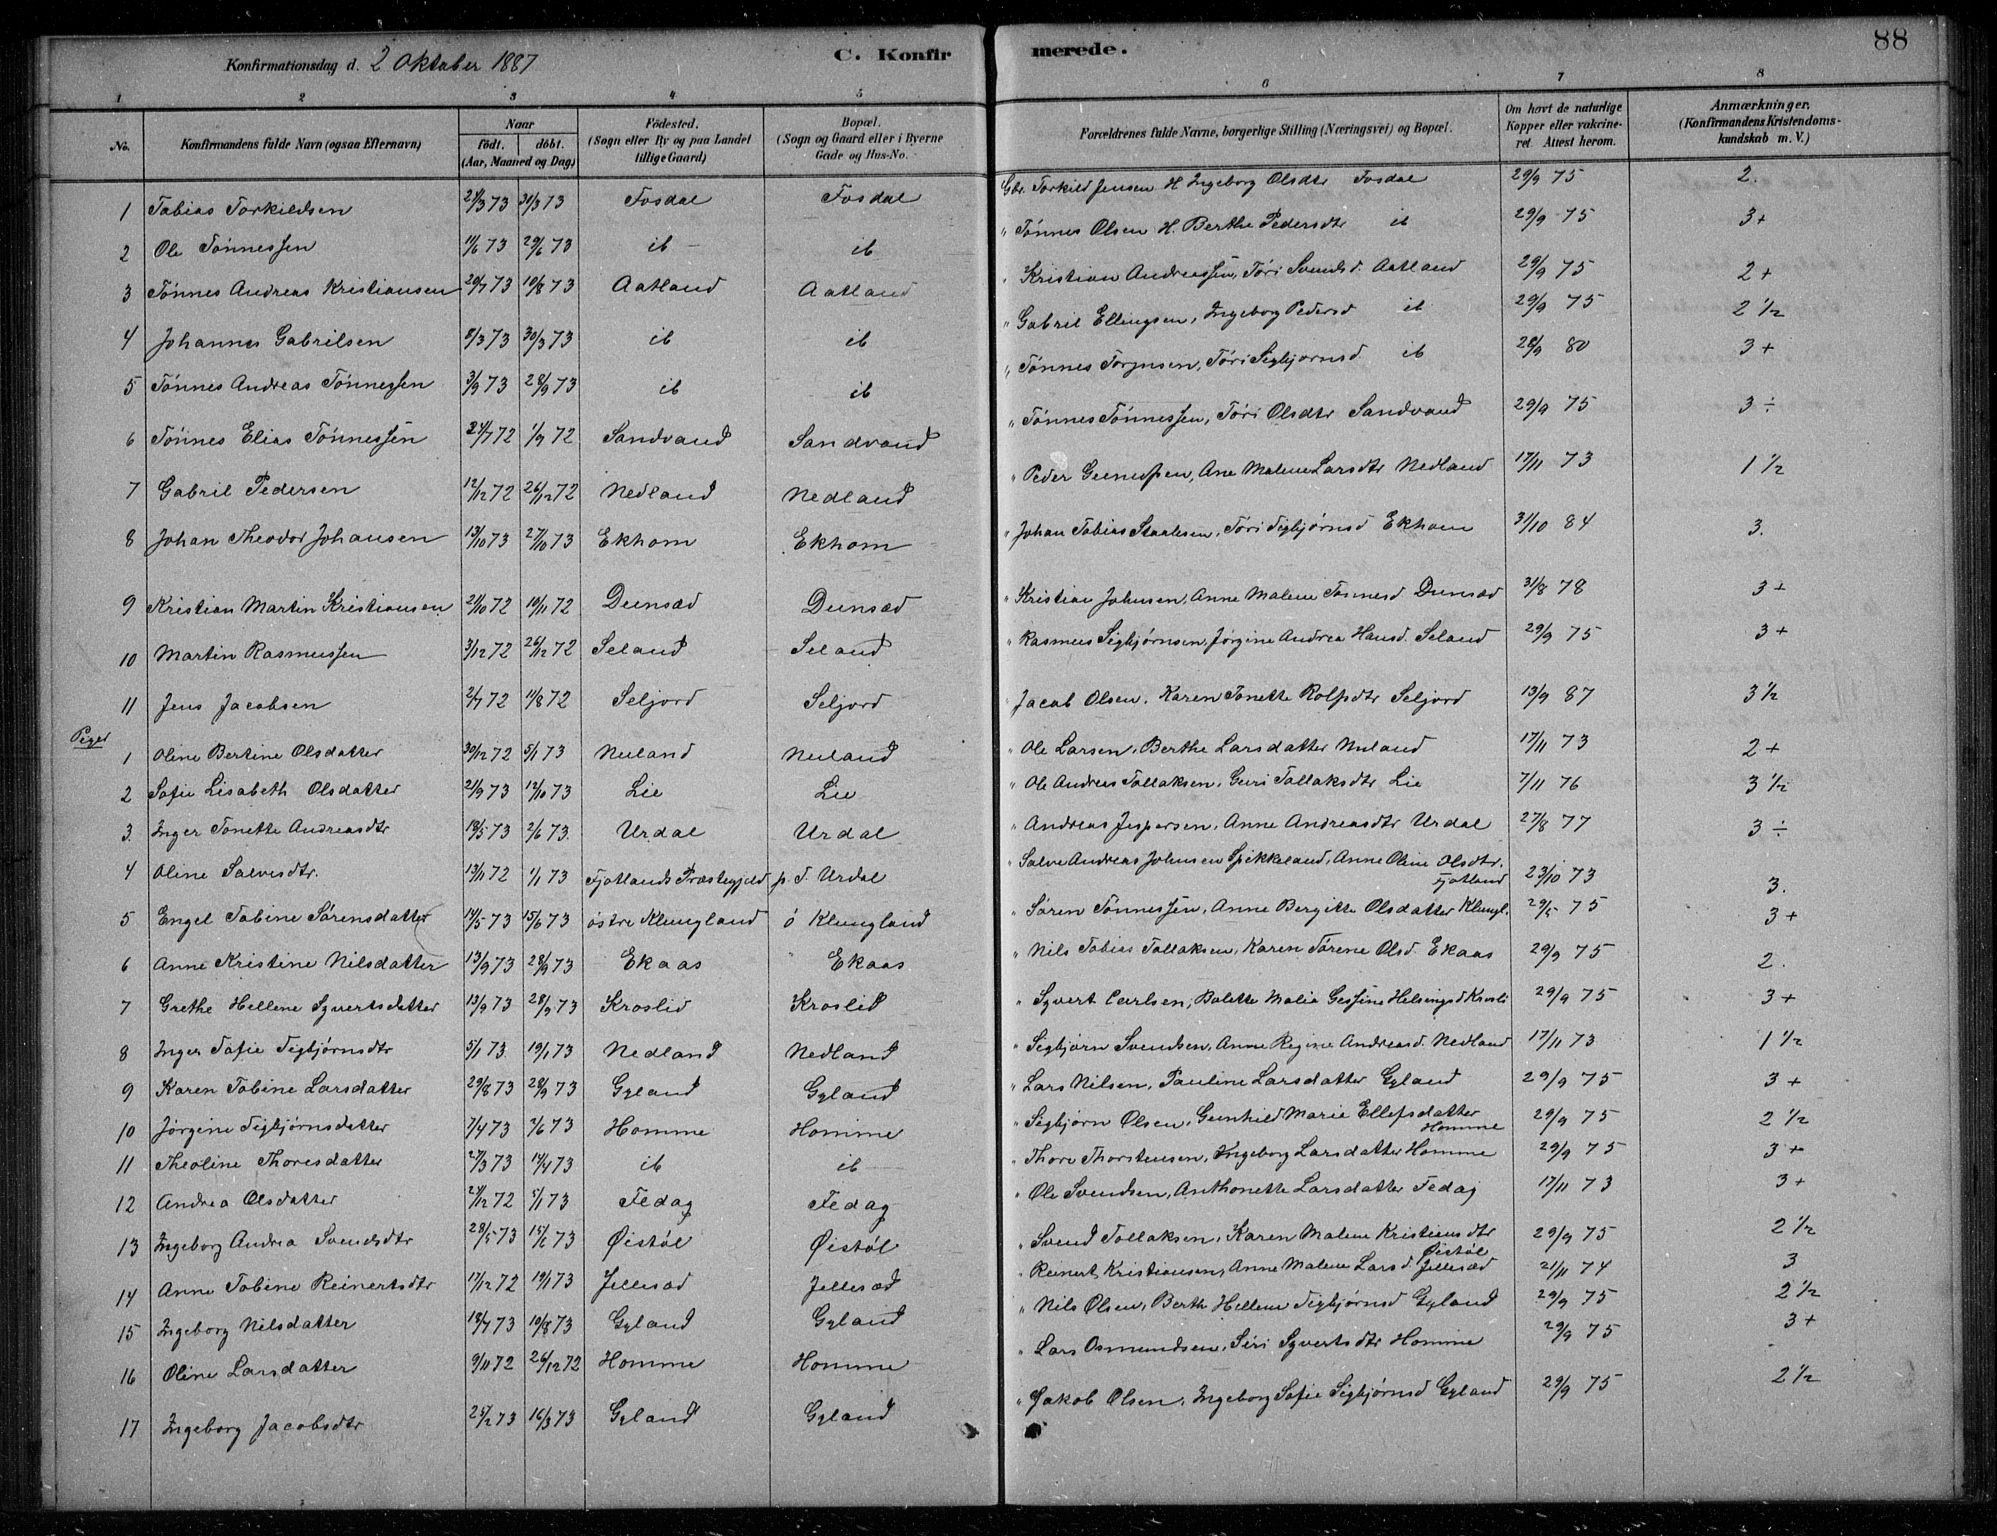 88
Konfirmationsdag d. 2 Oktober 1887
C. Konfir merede.
1 2 3 4 5 6 7 8
No. Konfirmandens fulde Navn (ogsaa Efternavn) Naar födt. döbt. (Aar, Maaned og Dag) Födested. (Sogn eller By og paa Landet tillige Gaard) Bopæl. (Sogn og Gaard eller i Byerne Gade og Hus-No. Forældrenes fulde Navne, borgerlige Stilling (Næringsvei) og Bopæl. Om havt de naturlige Kopper eller vakcineret. Attest herom. Anmærkninger. (Konfirmandens Kristendomskundskab m. V.)
1 Tobias Torkildsen 21/3 73 30/3 73 Fosdal Fosdal Gbr. Torkild Jensen H. Ingeborg Olsdtr Fosdal 29/9 75 2.
2 Ole Tönnessen 11/6 73 29/6 73 ib ib " Tønnes Olsen H. Berthe Pedersdtr ib 29/9 75 3+
3 Tönnes Andreas Kristiansen 20/7 73 10/8 73 Aatland Aatland " Kristian Andreassen, Töri Svendsd. Aatland 29/9 75 2+
4 Johannes Gabrilsen 8/3 73 30/3 73 ib ib " Gabril Ellingsen, Ingeborg Pedersd ib 29/9 75 2 1/2
5 Tönnes Andreas Tönnessen 3/9 73 28/9 73 ib ib " Tönnes Torjusen, Töri Sigbjørnsd. ib 28/9 80 3+
6 Tönnes Elias Tönnessen 24/7 72 1/9 72 Sandvand Sandvand " Tönnes Tönnessen, Töri Olsdtr Sandvand 29/9 75 3÷
7 Gabril Pedersen 12/12 72 26/12 72 Nedland Nedland " Peder Ane Malene Larsdtr Nedland 17/11 73 1 1/2
8 Johan Theodor Johansen 13/10 73 27/10 73 Ekhom Ekhom " Johan Tobias Staalesen, Töri Sigbjørnsd Ekhom 31/10 84 3.
9 Kristian Martin Kristiansen 21/10 72 10/11 72 Dunsæd Dunsæd " Kristian Johnsen, Anne Malene Tönnesd Dunsæd 31/8 78 3+
10 Martin Rasmussen 3/12 72 26/12 72 Seland Seland " Rasmus Sigbjørnsen, Jørgine Andrea Hansd. Seland 29/9 75 3+
11 Jens Jacobsen 2/7 72 11/8 72 Seljord Seljord " Jacob Olsen, Karen Tonette Rolfsdtr Seljord 13/9 87 3 1/2
Piger
1 Oline Bertine Olsdatter 30/12 72 5/1 73 Nuland Nuland " Ole Larsen, Berthe Larsdatter Nuland 17/11 73 2+
2 Sofie Lisabeth Olsdatter 21/9 73 12/10 73 Lie Lie " Ole Andreas Tollaksen, Guri Tollaksdtr Lie 7/11 76 3 1/2
3. Inger Tonette Andreasdtr 18/5 73 2/6 73. Urdal Urdal " Andreas Jespersen, Anne Andreasdtr Urdal 27/8 77 3÷
4 Oline Salvesdtr. 13/11 72 1/1 73 Fjotlands Præstegjeld p. T. Urdal " Salve Andreas Johnsen Spikkeland, Anne Oline Olsdtr. Fjotland 23/10 73 3.
5 Engel Tobine Sørensdatter 14/5 73 15/6 73 østre Klungland ö Klungland " Søren Tönnessen, Anne Bergitte Olsdatter Klungl. 29/5 75 3+
6 Anne Kristine Nilsdatter 13/9 73 28/9 73 Ekaas Ekaas " Nils Tobias Tollaksen, Karen Tørene Olsd. Ekaas 29/9 75 2.
7 Grethe Hellene Syvertsdatter 13/9 73 28/9 73 Kroslid Kroslid " Syvert Carlsen, Bolette Malia Gessine Helsingsd Krosli 29/9 75 3+
8 Inger Sofie Sigbjørnsdtr 5/1 73. 19/1 73 Nedland Nedland " Sigbjørn Svendsen, Anne Regine Andreasd. Nedland 17/11 73 1 1/2
9 Karen Tobine Larsdatter 29/8 73 28/9 73 Gyland Gyland " Lars Nilsen, Pauline Larsdatter Gyland 29/9 75 3+
10 Jørgine Sigbjørnsdatter 7/4 73 2/6 73 Homme Homme " Sigbjørn Olsen, Gunhild Marie Ellefsdatter Homme 29/9 75 2 1/2
11 Theoline Thoresdatter 27/3 73 14/4 73 ib ib " Thore Thorstensen, Ingeborg Larsdatter Homme 29/9 75 3+
12 Andrea Olsdatter 24/12 72 5/1 73 Fedag Fedag " Ole Svendsen, Anthonette Larsdatter Fedag 17/11 73 3+
13 Ingeborg Andrea Svendsdtr 28/5 73 15/6 73 Øistöl Øistöl " Svend Tollaksen, Karen Malene Kristiensdtr Øistöl 29/9 75 2 1/2
14 Anne Tobine Reinertsdtr 17/12 72 19/1 73 Jellesæd Jellesæd " Reinert Kristiansen, Anne Malene Larsd Jellesæd 21/11 74 3
15 Ingeborg Nilsdatter 18/7 73 10/8 73 Gyland Gyland " Nils Olsen, Berth Hellene Sigbjørnsd Gyland 29/9 75 2 1/2
16 Oline Larsdatter 9/11 72 26/12 72 Homme Homme " Lars Osmundsen, Siri Syvertsdtr Homme 29/9 75 3+
17 Ingeborg Jacobsdtr 25/2 73 16/3 73 Gyland Gyland " Jakob Olsen, Ingeborg Sofie Sigbjørnsd Gyland 29/9 75 2 1/2